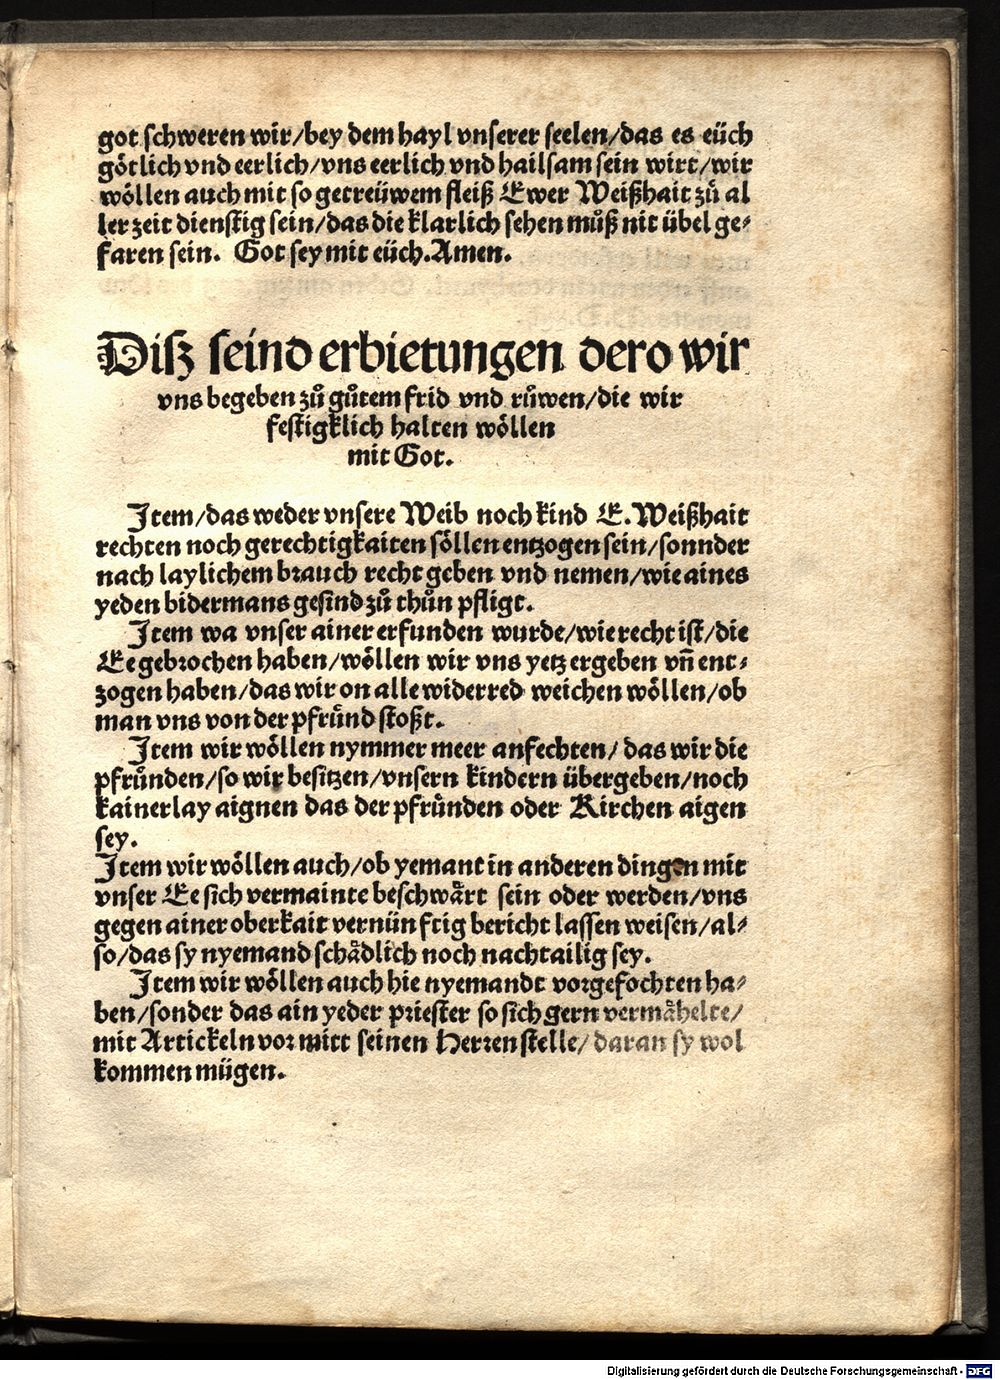 got schweren wir/bey dem hayl vnserer seelen/das es eüch
götlich vnd eerlich/vns eerlich vnd hailsam sein wirt/wir
wöllen auch mit so getreüwem fleiß Ewer Weißhait zů al
ler zeit dienstig sein/das die klarlich sehen můß nit übel ge⸗
faren sein. Got sey mit eüch. Amen.
Diß seind erbietungen dero wir
vns begeben zů gůtem frid vnd růwen/die wir
festigklich halten wöllen
mit Got.
Item/das weder vnsere Weib noch kind E. Weißhait
rechten noch gerechtigkaiten söllen entzogen sein/sonnder
nach laylichem brauch recht geben vnd nemen/wie aines
yeden bidermans gesind zů thůn pfligt.
Item wa vnser ainer erfunden wurde/wie recht ist/die
Ee gebrochen haben/wöllen wir vns yetz ergeben vn̄ ent⸗
zogen haben/das wir on alle widerred weichen wöllen/ob
man vns von der pfrůnd stoßt.
Item wir wöllen nymmer meer anfechten/ das wir die
pfrůnden/so wir besitzen/vnsern kindern übergeben/noch
kainerlay aignen das der pfrůnden oder Kirchen aigen
sey.
Item wir wöllen auch/ob yemant in anderen dingen mit
vnser Ee sich vermainte beschwårt sein oder werden/vns
gegen ainer oberkait vernünftig bericht lassen weisen/al⸗
so/das sy nyemand schådlich noch nachtailig sey.
Item wir wöllen auch hie nyemandt vorgefochten ha⸗
ben/sonder das ain yeder priester so sich gern vermåhelte/
mit Artickeln vor mitt seinen Herren stelle/daran sy wol
kommen mügen.
Digitalisierung gefördert durch die Deutsche Forschungsgemeinschaft - DFG